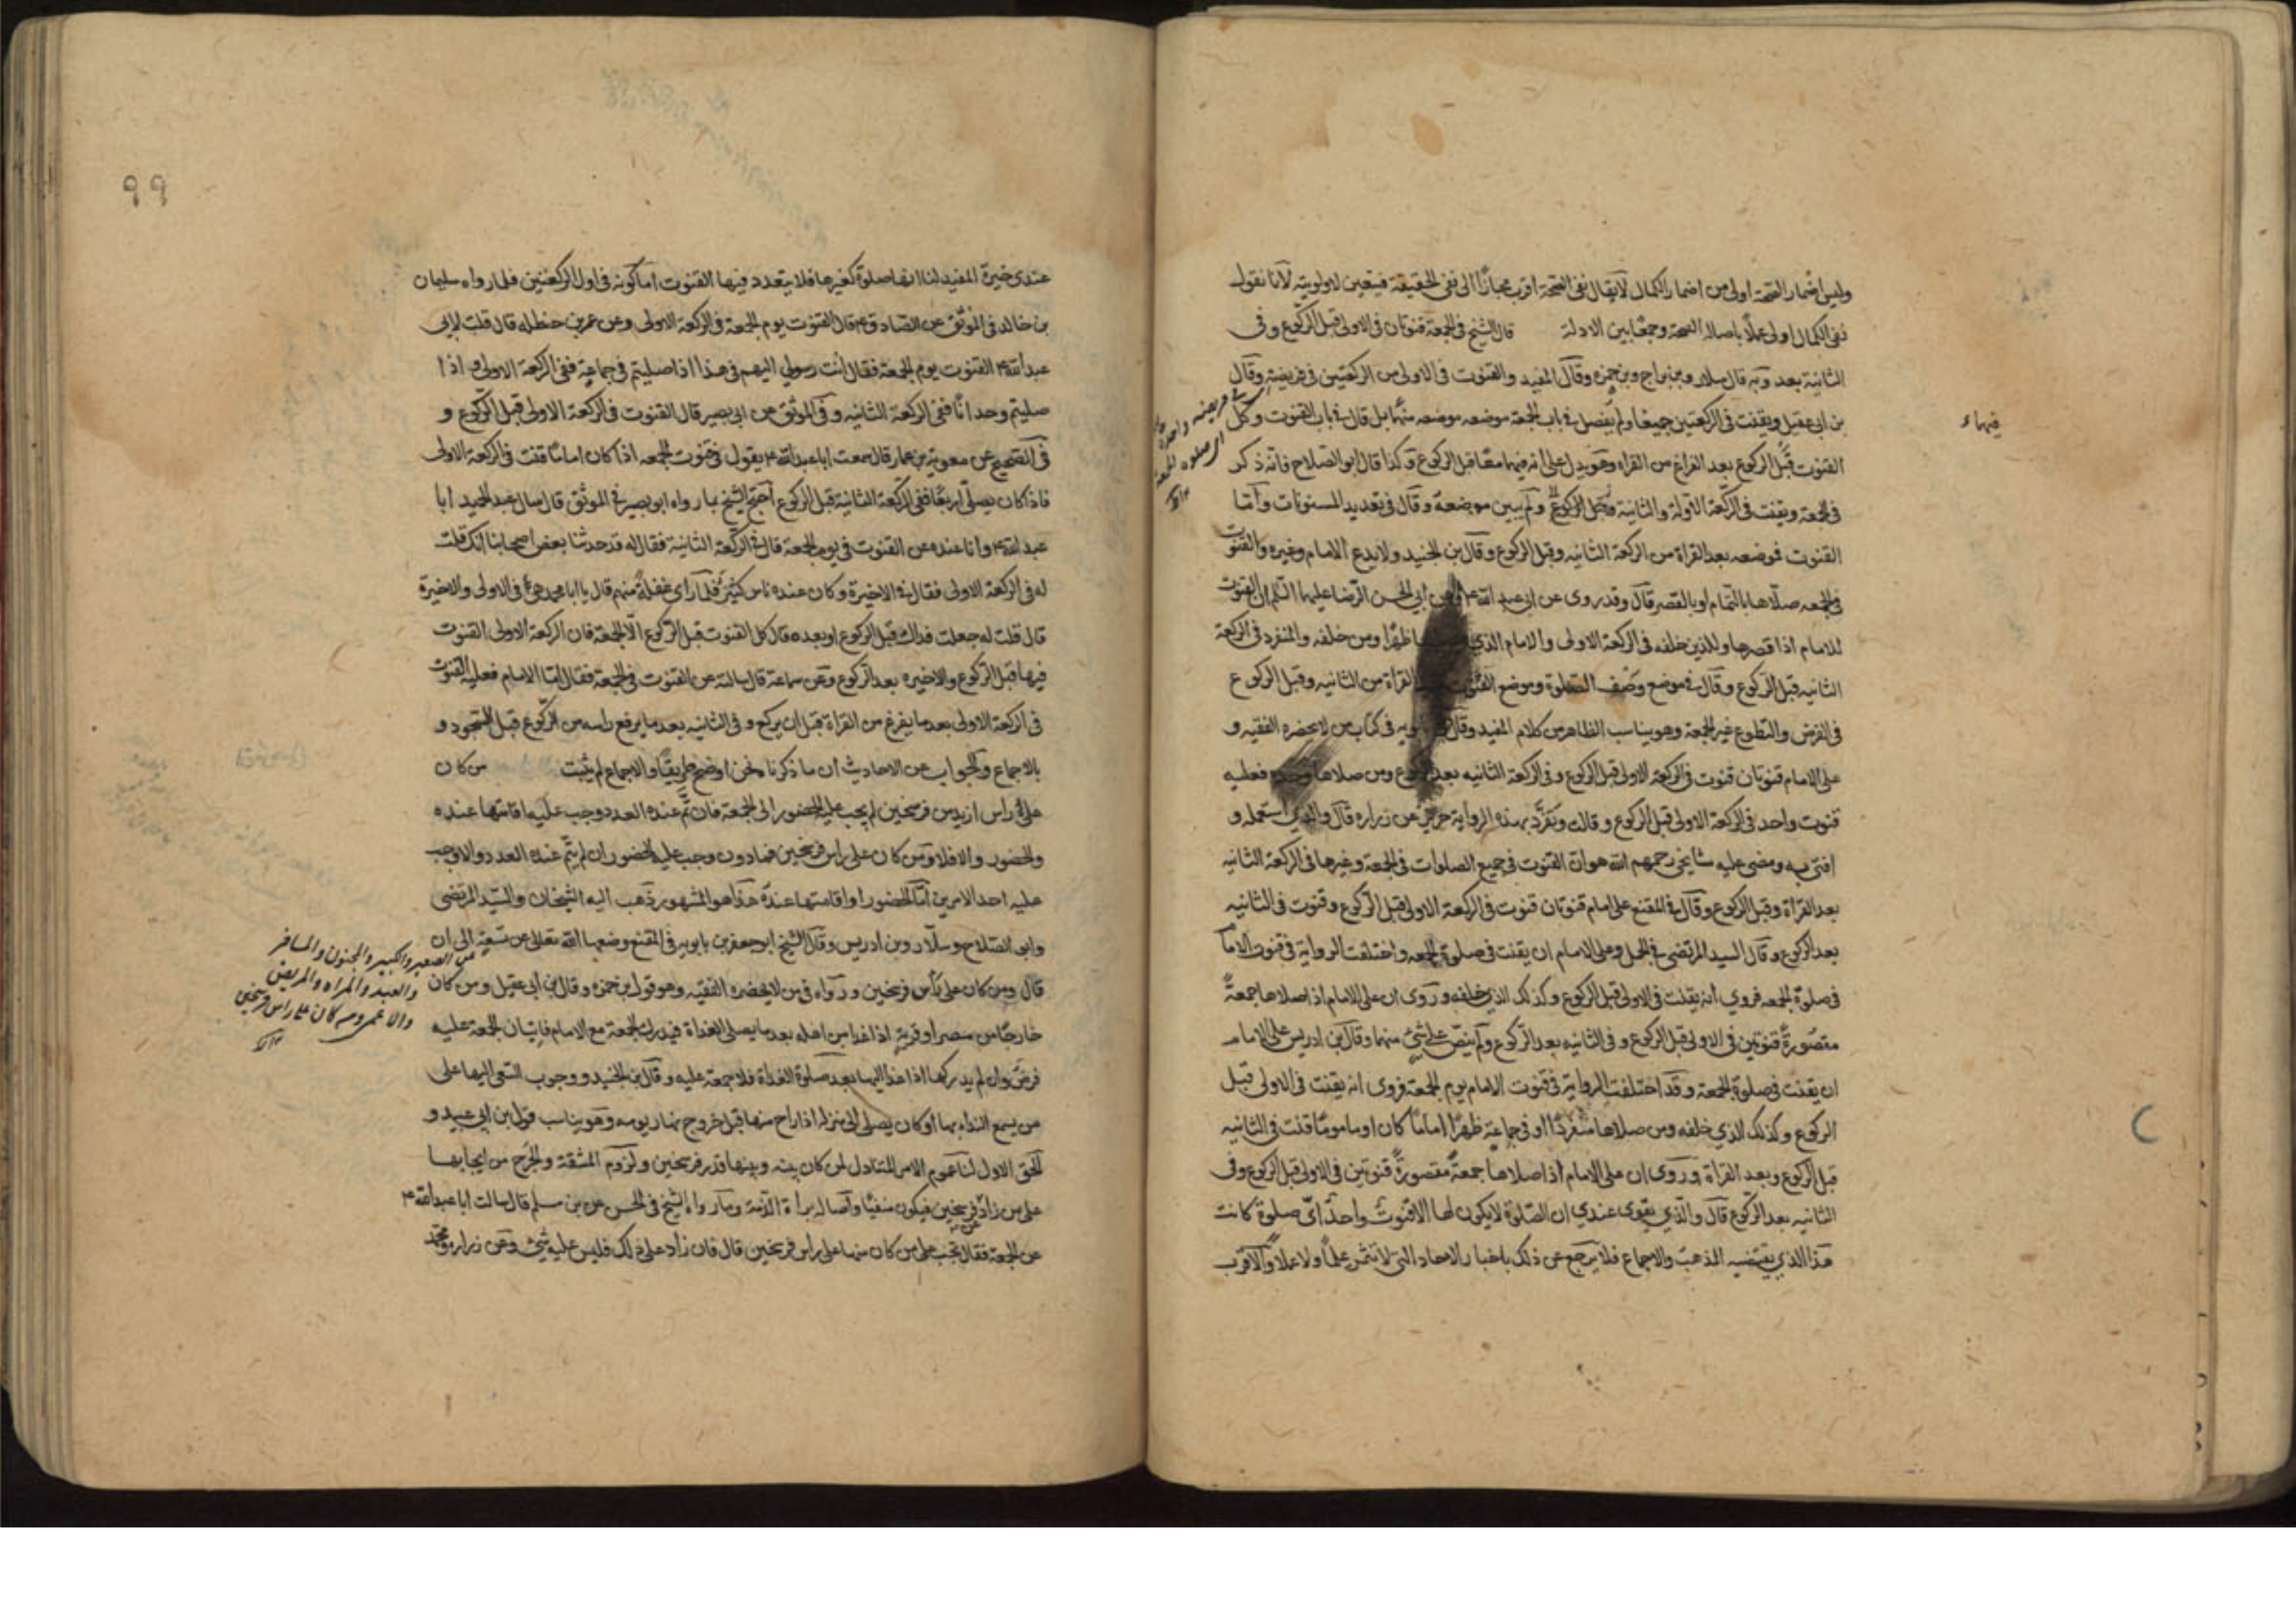 وليس اضمار الصحة اولى من اضمار الكمال لا يقال نفى الصحة اقرب مجازا الى نفى الحقيقة فيتعين لاولويته لانا نقول
نفى الكمال اولى عملا باصالة الصحة وجمعا بين الادلة قال الشيخ فى الجمعة قنوتان فى الاولى قبل الركوع وفى
الثانية بعده وبه قال سلار وبن براج وبن حمزه وقال المفيد والقنوت فى الاولى من الركعتين فى فريضة وقال
بن ابى عقيل ويقنت فى الركعتين جميعا ولم يفصل فى باب الجمعة موضعه منهما بل قال فى باب القنوت وكل
القنوت قبل الركوع بعد الفراغ من القراة وهو يدل على انه فيهما معا قبل الركوع وكذا قال ابو الصلاح فانه ذكر
فى الجمعة ويقنت فى الركعة الاولة والثانية ولم يبين موضعه وقال فى تعديد المسنونات واما
القنوت فموضعه بعد القراة من الركعة الثانيه وقبل الركوع وقال بن الجنيد ولا يدع الامام وغيره والقنوت
فى الجمعه صلاها بالتمام او بالقصر قال وقد روى عن ابى عبد الله ابى الحسن الرضا عليهما السلم ان القنوت
للامام اذا قصرها وللذين خلفه فى الركعة الاولى والامام الذى ظهرا ومن خلفه والمنفرد فى الركعة
الثانيه قبل الركوع وقال فى موضع وصف الصلوة وموضع القنوت القراة من الثانيه وقبل الركوع
فى الفرض والتطوع غير الجمعة وهو يناسب الظاهر من كلام المفيد وقال بابويه فى كتاب من لا يحضره الفقيه و
على الامام قنوتان قنوت فى الركعة الاولى قبل الركوع وفى الركعة الثانيه بعد الركوع ومن صلاها وحده فعليه
قنوت واحد فى الركعة الاولى قبل الركوع وقال وتفرد بهذه الرواية حريز عن زراره قال والذى استعمله و
افتى به ومضى عليه مشايخى رحمهم الله هو ان القنوت فى جميع الصلوات فى الجمعة وغيرها فى الركعة الثانية
بعد القراة وقبل الركوع وقال فى المقنع على امام قنوتان قنوت فى الركعة الاولى قبل الركوع وقنوت فى الثانيه
بعد الركوع وقال السيد المرتضى فى الجمل وعلى الامام ان يقنت فى صلوة الجمعه واختلفت الرواية فى قنوت الامام
فى صلوة الجمعه فروى انه يقنت فى الاولى قبل الركوع وكذلك الذين خلفه وروى ان على الامام اذا صلاها جمعة
مقصورة قنوتين فى الاولى قبل الركوع وفى الثانيه بعد الركوع ولم ينص على شئ منهما وقال بن ادريس على الامام
ان يقنت فى صلوة الجمعة وقد اختلفت الرواية فى قنوت الامام يوم الجمعة فروى انه يقنت فى الاولى قبل
الركوع وكذلك الذى خلفه ومن صلاها منفردا او فى جماعة ظهرا اماما كان او ماموما قنت فى الثانيه
قبل الركوع وبعد القراة وروى ان على الامام اذا صلاها جمعة مقصورة قنوتين فى الاولى قبل الركوع وفى
الثانيه بعد الركوع قال والذى يقوى عندى ان الصلوة لا يكون لها الا قنوت واحد اى صلوة كانت
هذا الذى يقتضيه المذهب والاجماع فلا يرجع عن ذلك باخبار الاحاد التى لا تثمر علما ولا عملا والاقرب
فيهما
فريضه واحدة
الا صلوة الجمعة
٩٩
عندى خيرة المفيد لنا انها صلوة كغيرها فلا يتعدد فيها القنوت اما كونه فى اول الركعتين فلما رواه سليمان
بن خالد فى الموثق عن الصادق ع قال القنوت يوم الجمعة فى الركعة الاولى وعن عمر بن حنظله قال قلت لابى
عبد الله ع القنوت يوم الجمعة فقال انت رسولى اليهم فى هذا اذا صليتم فى جماعة ففى الركعة الاولى واذا
صليتم وحدانا ففى الركعة الثانيه وفى الموثق عن ابى بصير قال القنوت فى الركعة الاولى قبل الركوع و
فى الصحيح عن معوية بن عمار قال سمعت ابا عبد الله ع يقول فى قنوت الجمعه اذا كان اماما قنت فى الركعة الاولى
فاذا كان يصلى اربعا ففى الركعة الثانية قبل الركوع احتج الشيخ بما رواه ابو بصير فى الموثق قال سال عبد الحميد ابا
عبد الله ع وانا عنده عن القنوت فى يوم الجمعة قال فى الركعة الثانية فقال له قد حدثنا بعض اصحابنا انك قلت
له فى الركعة الاولى فقال فى الاخيرة وكان عنده ناس كثير فلما راى غفلة منهم قال يا ابا محمد هى فى الاولى والاخيرة
قال قلت له جعلت فداك قبل الركوع او بعده قال كل القنوت قبل الركوع الا الجمعة فان الركعة الاولى القنوت
فيها قبل الركوع والاخيره بعد الركوع وعن سماعة قال سالته عن القنوت فى الجمعة فقال اما الامام فعليه القنوت
فى الركعة الاولى بعد ما يفرغ من القراة قبل ان يركع وفى الثانيه بعد ما يرفع راسه من الركوع قبل السجود و
بالاجماع والجواب عن الاحاديث ان ما ذكرناه نحن اوضح طريقا والاجماع لم يثبت من كان
على راس ازيد من فرسخين لم يجب عليه الحضور الى الجمعة فان تم عنده العدد وجب عليه اقامتها عنده
والحضور والا فلا ومن كان على راس فرسخين فما دون وجب عليه الحضور ان لم يتم عنده العدد والا وجب
عليه احد الامرين اما الحضور او اقامتها عنده هذا هو المشهور ذهب اليه الشيخان والسيد المرتضى
وابو الصلاح وسلار وبن ادريس وقال الشيخ ابو جعفر بن بابويه فى المقنع وضعها الله تعالى عن تسعة الى ان
قال ومن كان على راس فرسخين ورواه فى من لا يحضره الفقيه وهو قول بن حمزه وقال بن ابى عقيل ومن كان
خارجا من مصر او قرية اذا غدا من اهله بعد ما يصلى الغداة فيدرك الجمعة مع الامام فاتيان الجمعة عليه
فرض وان لم يدركها اذا غدا اليها بعد صلوة الغداة فلا جمعة عليه وقال بن الجنيد ووجوب السعى اليها على
من يسمع النداء بها او كان يصلى الى منزله اذا راح منها قبل خروج نهار يومه وهو يناسب قول بن ابى عقيل و
الحق الاول لنا عموم الامر المتناول لمن كان بينه وبينها قدر فرسخين ولزوم المشقة والحرج من ايجابها
على من زاد عن فرسخين فيكون منفيا واصالة براءة الذمة وما رواه الشيخ فى الحسن عن بن مسلم قال سالت ابا عبد الله ع
عن الجمعة فقال تجب على من كان منها على راس فرسخين قال فان زاد على ذلك فليس عليه شئ وعن زراره ومحمد
عن الصغير والكبير والمجنون والمسافر
والعبد والمراه والمريض
والاعمى ومن كان على راس فرسخين